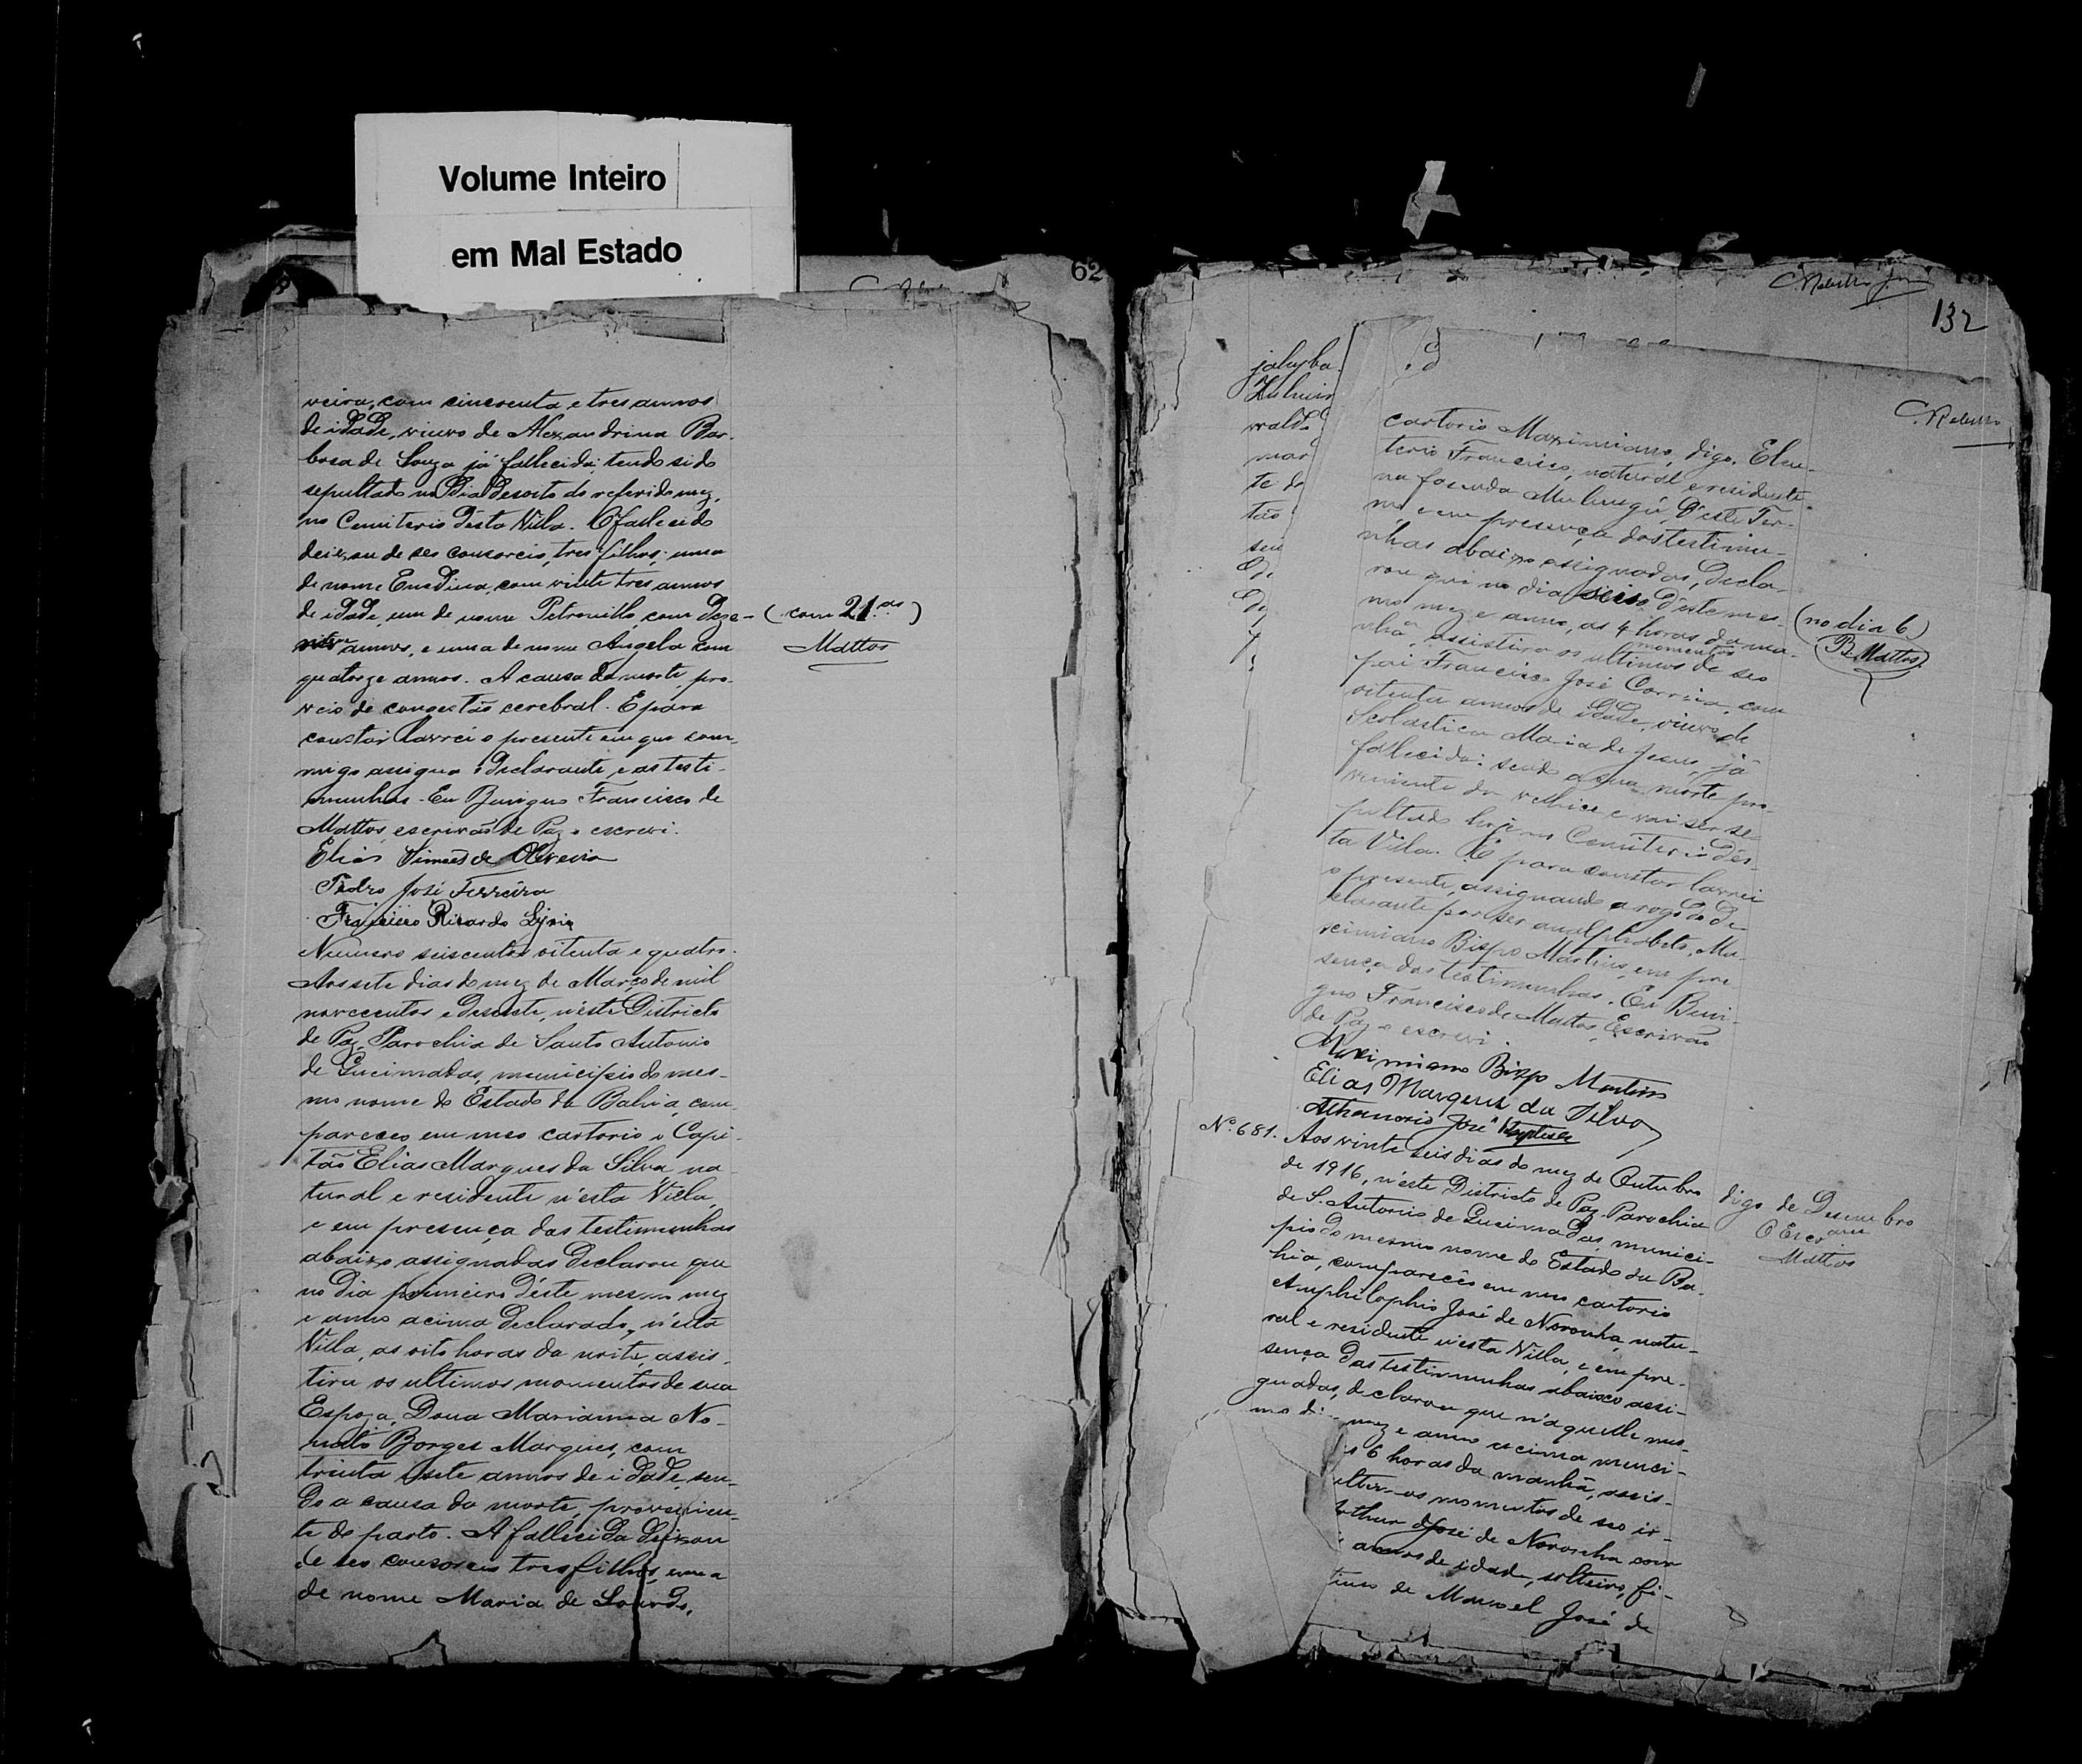 Volume Inteiro
em Mal Estado
62
veira, com cincoenta e tres annos
de idade, viuvo de Alexandrina Bar-
bosa de Souza já fallecida; tendo sido
sepultado no dia desoito do referido mez,
no Cemiterio d'esta Villa. O fallecido
deixou de seo consorcio, tres filhos; uma
de nome Enedina, com vinte tres annos
de idade, um de nome Petronillo, com deze- (com 21 as)
annos, e uma de nome Angela com Mattos
quatorze annos. A causa da morte pro-
veio de congestão cerebral. E para
constar lavrei o presente em que com-
migo assigna o declarante e as testi-
munhas. Eu Benigno Francisco de
Mattos, escrivão de Paz o escrevi.
Elias Simões de Oliveira
Pedro José Ferreira
Francisco Ricardo
Numero seiscentos oitenta e quatro.
Aos sete dias do mez de Março de mil
novecentos e desesete, n'éste Districto
de Paz, Parochia de Santo Antonio
de Queimadas, municipio do mes-
mo nome do Estado da Bahia, com-
pareceo em meo cartorio o Capi-
tão Elias Marques da Silva na-
tural e residente n'esta Villa,
e em presença das testimunhas
abaixo assignadas declarou que
no dia primeiro d'éste mesmo mez
e anno acima declarado, n'esta
Villa, as oito horas da noite, assis-
tira os ultimos momentos de sua
Espoza, Dona Marianna No-
nato Borges Marques, com
trinta e sete annos de idade, sen-
do a causa da morte, provenien-
te do parto. A fallecida deixou
de seo consorcio tres filhos, uma
de nome Maria de Lourdes,
132
mar
te do
tão
cartorio Maximiano, digo, Eleu-
terio Francisco, natural e residente
na fazenda Mulungú, d'este Ter-
mo e em presença das testimu-
nhas abaixo assignadas, decla-
rou que no dia seis d'este mes-
mo mez e anno, as 4 horas da ma- (no dia 6)
nhã, assistira os ultimos momentos de seo B. Mattos
pai Francisco José Correia, com
oitenta annos de idade, viuvo de
Scolastica Maria de Jesus, já
fallecida: sendo a sua morte pro-
veniente da velhice e vai ser se-
pultado hoje no Cemiterio d'és-
ta Villa. E para constar lavrei
o presente, assignando a rogo do de-
clarante por ser analphabeto, Ma-
ximiano Bispo Martins, em pre-
sença das testimunhas. Eu Beni-
gno Francisco de Mattos, Escrivão
de Paz o escrevi.
Maximiano Bispo Martins
Elias Marques da Silva
Athanasio José Baptista
No. 681. Aos vinte seis dias do mez de Outubro
de 1916, n'éste Districto de Paz, Parochia digo de Desembro
de S. Antonio de Queimadas, munici- O Escam
pio do mesmo nome do Estado da Ba- Mattos
hia, compareceo em meo cartorio
Amphilophio José de Noronha, natu-
ral e residente n'ésta Villa, e em pre-
sença das testimunhas abaixo assi-
gnadas, declarou que n'aquelle mes-
mo mez e anno acima menci-
6 horas da manhã, assis-
ultimos momentos de seo ir-
José de Noronha com
annos de idade, solteiro, fi-
de Manoel José de